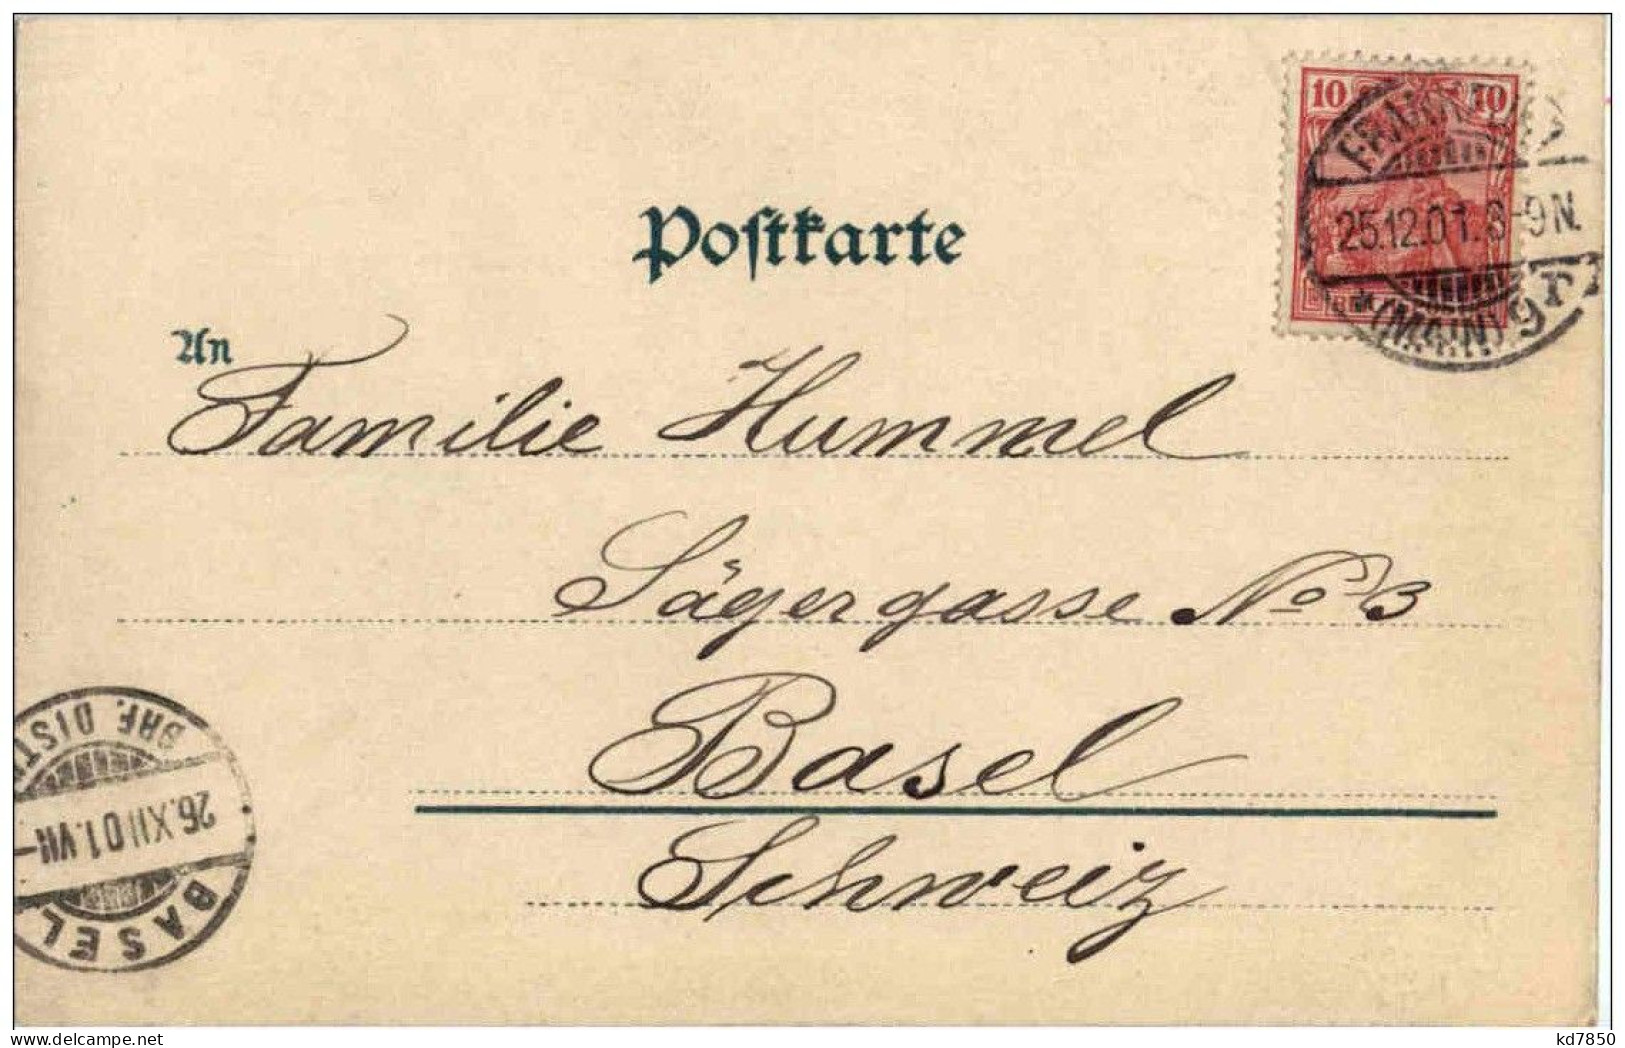 10 10
FRANKFURT
25.12.01. 8-9N.
* (MAIN) 9 T
Postkarte
An
Familie Hummel
Sägergasse No 3
Basel
Schweiz
BRF. DIST
26.XII 01.VII-
BASEL
kd7850